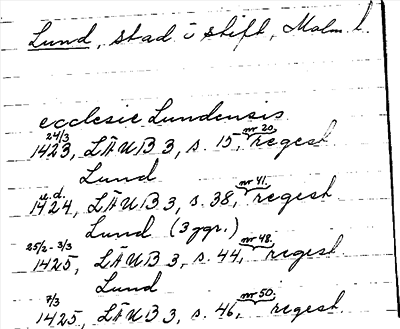 Lund, stad i stift, Malm. l.
ecclesie Lundensis
24/3 nr 20,
1423, LÄUB 3, s. 15, regest
Lund
u.d. nr 41,
1424, LÄUB 3, s. 38, regest
Lund (3 ggr.)
25/2 - 3/3 nr 48,
1425, LÄUB 3, s. 44, regest
Lund
7/3 nr 50,
1425, LÄUB 3, s. 46, regest